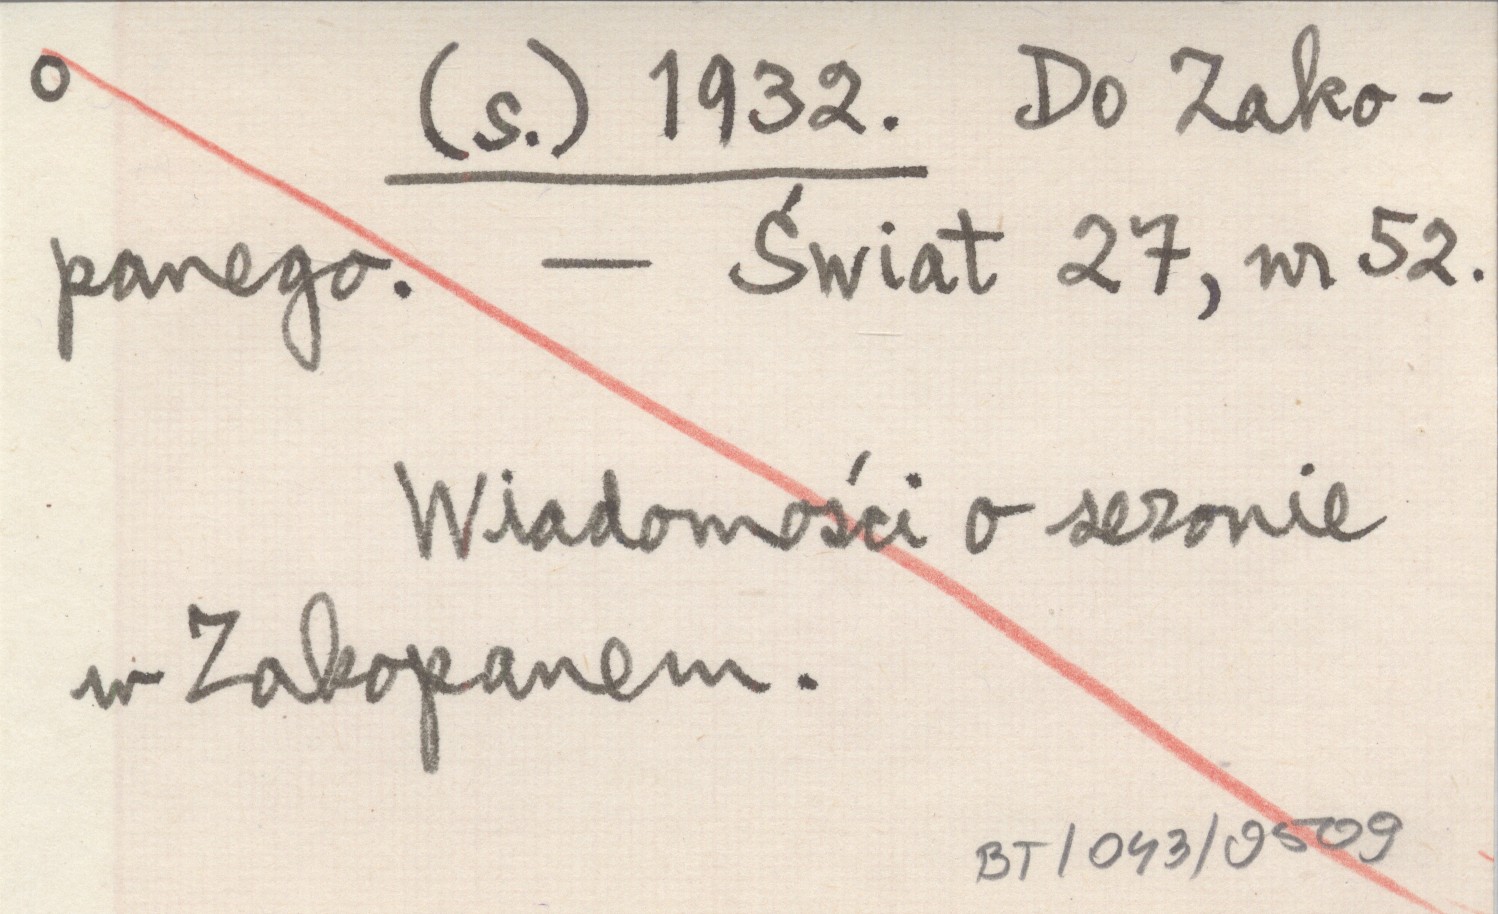 o (s.) 1932. Do Zako-
panego. — Świat 27, nr 52.
Wiadomości o sezonie
w Zakopanem.
BT/043/9509